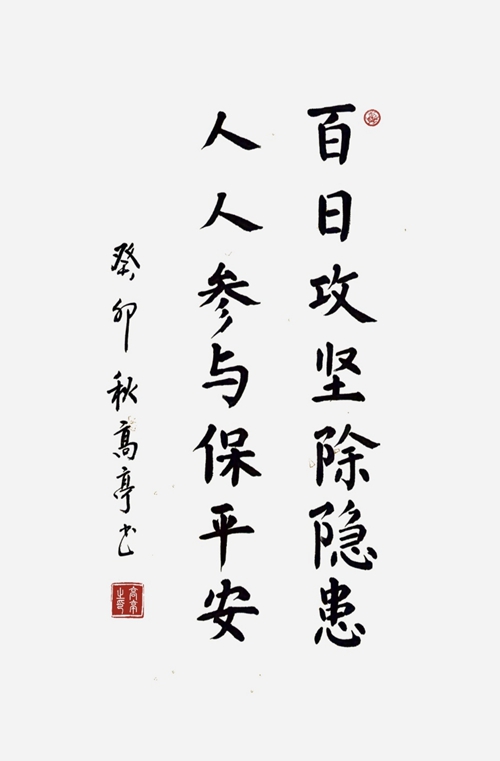 百日攻坚除隐患
人人参与保平安
癸卯秋高亭书
高亭之印